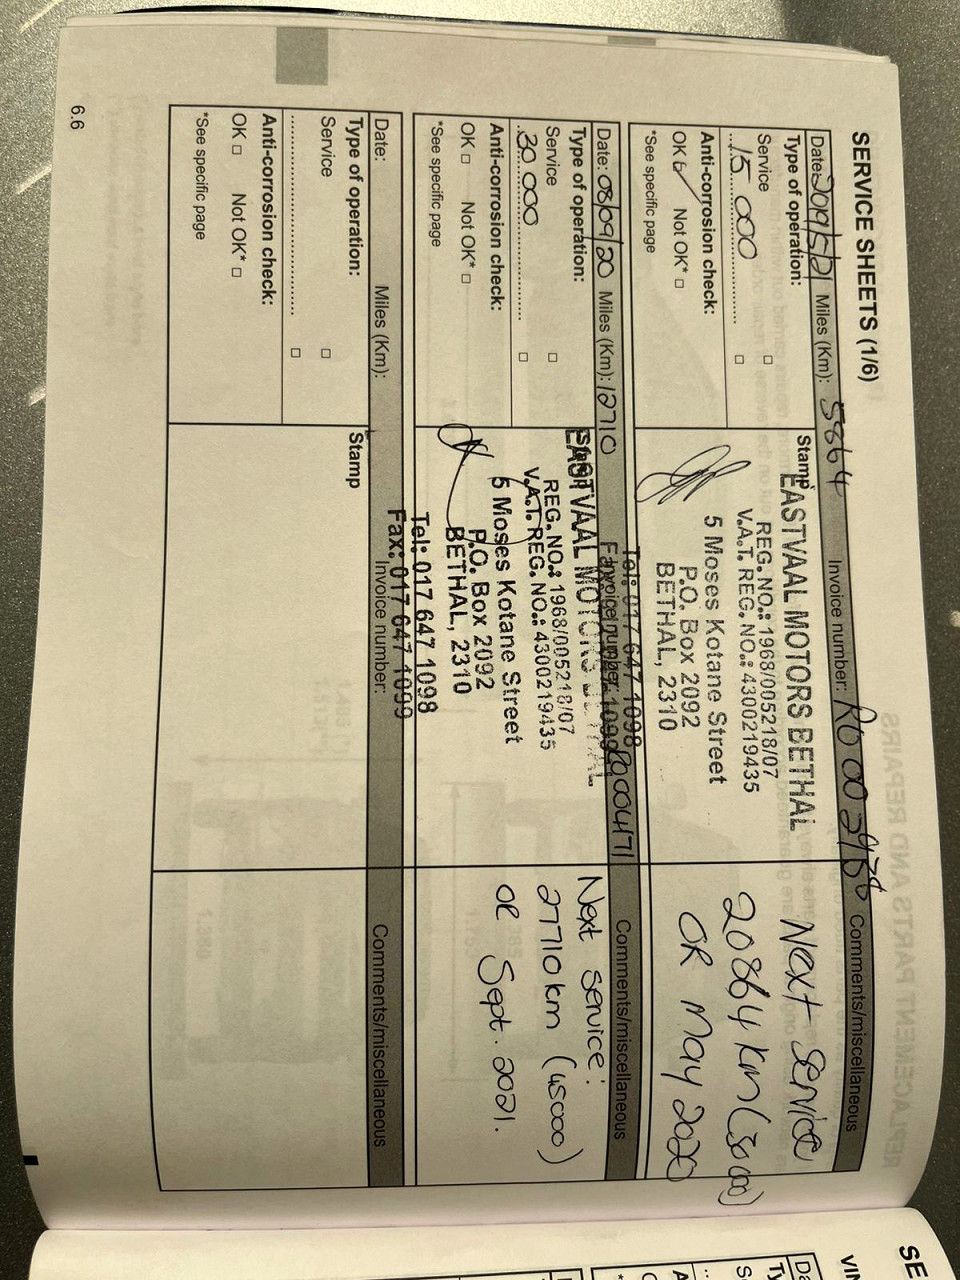 SERVICE SHEETS (1/6)
Date: 2019/5/21 Miles (Km): 5864 Invoice number: R0002938 Comments/miscellaneous
Type of operation:
Service □
15 000 □
Anti-corrosion check:
OK Not OK* □
*See specific page
Stamp
EASTVAAL MOTORS BETHAL
REG. NO.: 1968/005218/07
V.A.T. REG. NO.: 4300219435
5 Moses Kotane Street
P.O. Box 2092
BETHAL, 2310
Tel: 017 647 1098
Fax: 017 647 1099
Next Service
20864 km (30 000)
OR May 2020
Date: 08/09/20 Miles (Km): 12710 Invoice number: Comments/miscellaneous
Type of operation:
Service □
30 000 □
Anti-corrosion check:
OK □ Not OK* □
*See specific page
Stamp
EASTVAAL MOTORS BETHAL
REG. NO.: 1968/005218/07
V.A.T. REG. NO.: 4300219435
5 Moses Kotane Street
P.O. Box 2092
BETHAL, 2310
Tel: 017 647 1098
Fax: 017 647 1099
Next service:
27710 km (45000)
OR Sept. 2021.
Date: Miles (Km): Invoice number: Comments/miscellaneous
Type of operation:
Service □
□
Anti-corrosion check:
OK □ Not OK* □
*See specific page
Stamp
6.6